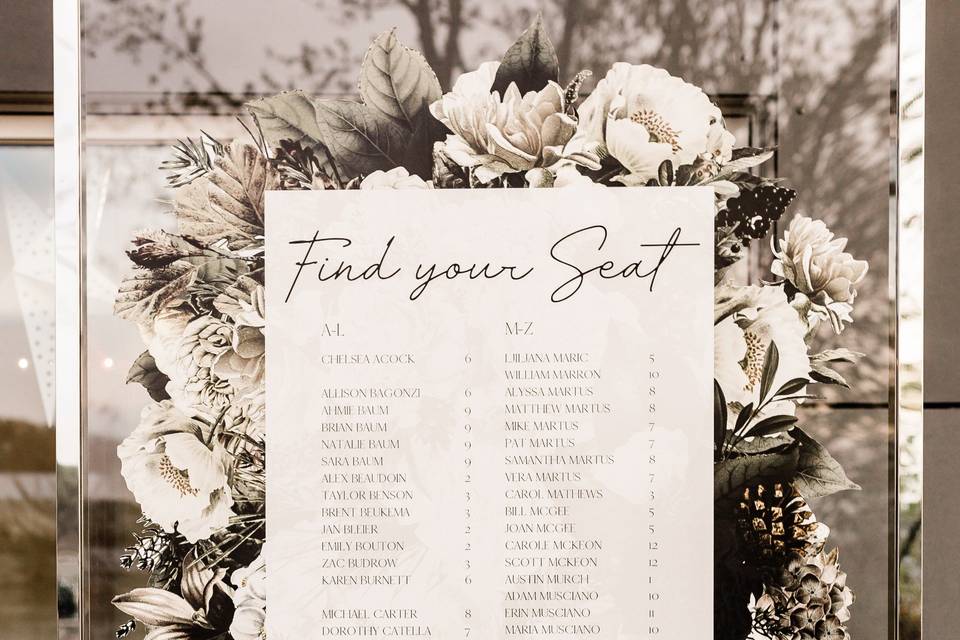 Find your Seat
A-L
CHELSEA ACOCK 6
ALLISON BAGONZI 6
AHMIE BAUM 9
BRIAN BAUM 9
NATALIE BAUM 9
SARA BAUM 9
ALEX BEAUDOIN 2
TAYLOR BENSON 3
BRENT BEUKEMA 3
JAN BLEIER 2
EMILY BOUTON 2
ZAC BUDROW 3
KAREN BURNETT 6
MICHAEL CARTER 8
DOROTHY CATELLA 7
M-Z
LJILJANA MARIC 5
WILLIAM MARRON 10
ALYSSA MARTUS 8
MATTHEW MARTUS 8
MIKE MARTUS 7
PAT MARTUS 7
SAMANTHA MARTUS 8
VERA MARTUS 7
CAROL MATHEWS 3
BILL MCGEE 5
JOAN MCGEE 5
CAROLE MCKEON 12
SCOTT MCKEON 12
AUSTIN MURCH 1
ADAM MUSCIANO 10
ERIN MUSCIANO 11
MARIA MUSCIANO 10